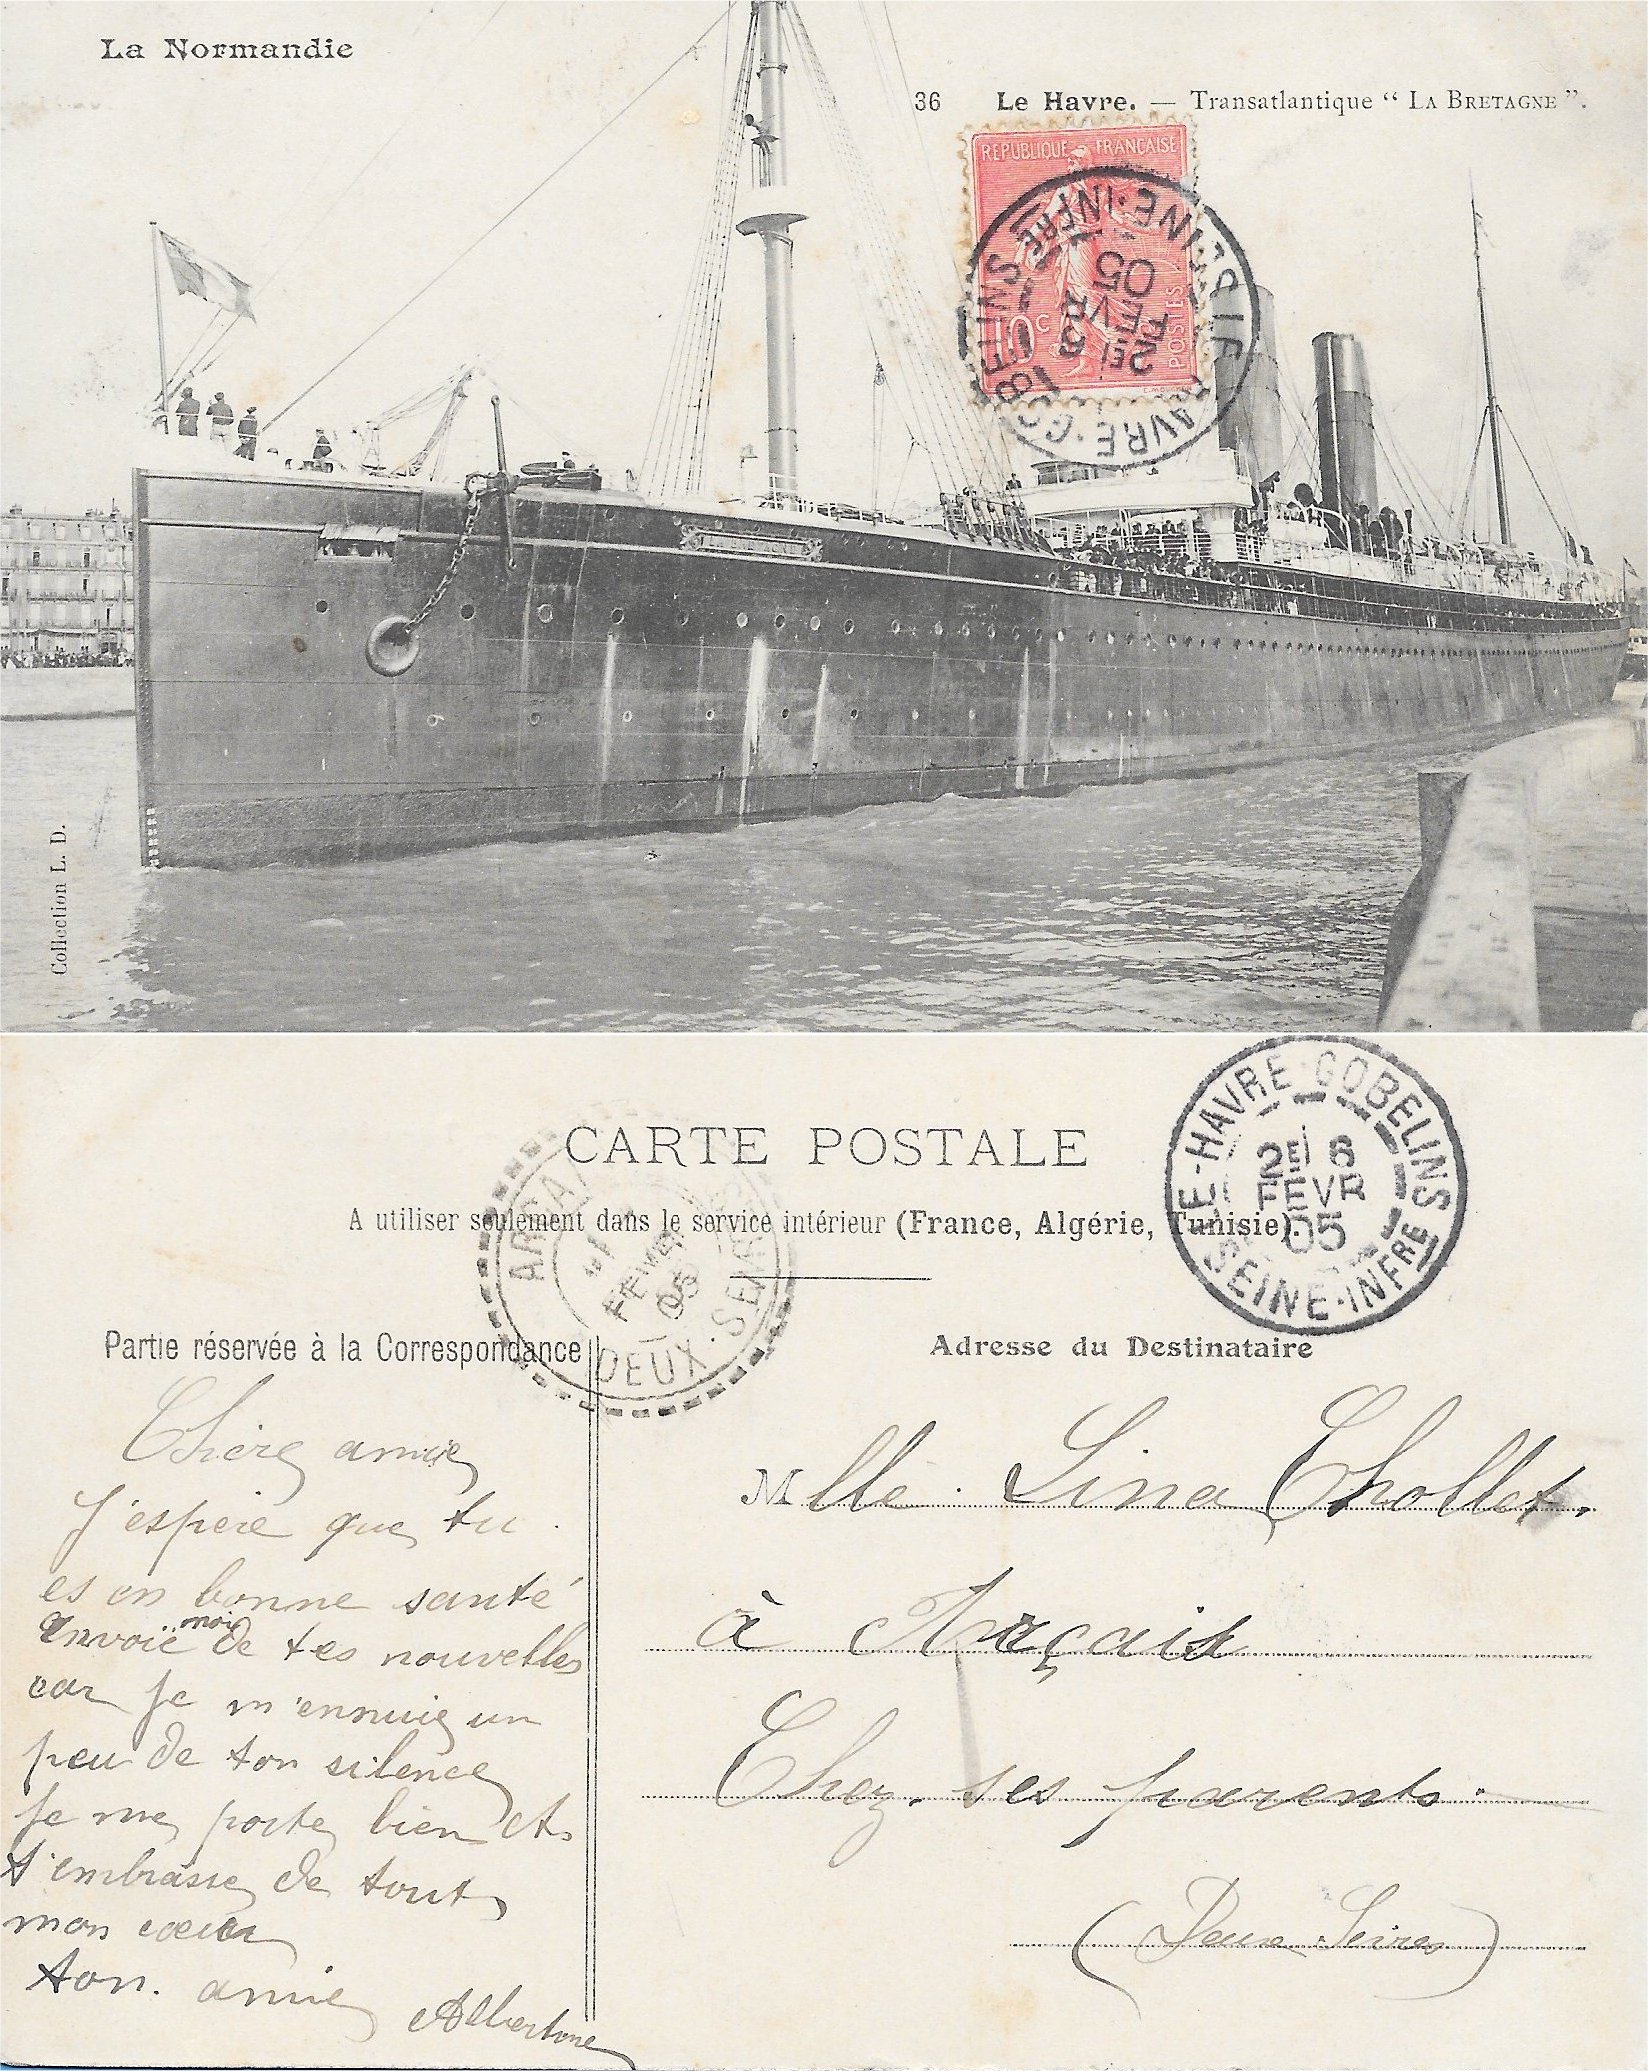 La Normandie
36 Le Havre. — Transatlantique “ LA BRETAGNE ”.
REPUBLIQUE FRANÇAISE
10 c
POSTES
LE HAVRE · GOBELINS
2E 6
FEVR
05
SEINE · INFRE
Collection L. D.
CARTE POSTALE
A utiliser seulement dans le service intérieur (France, Algérie, Tunisie).
LE · HAVRE · GOBELINS
2E 6
FEVR
05
SEINE · INFRE
FEVR
05
DEUX · SEVRES
Partie réservée à la Correspondance
Adresse du Destinataire
Chère amie
J'espère que tu
es en bonne santé
envoïe moi de tes nouvelles
car je m'ennuie un
peu de ton silence
je me porte bien et
t'embrasse de tout
mon cœur
ton. amie Albertine
Mlle. Lina Chollet.
à Arçais
Chez. ses parents.
(Deux-Sèvres)